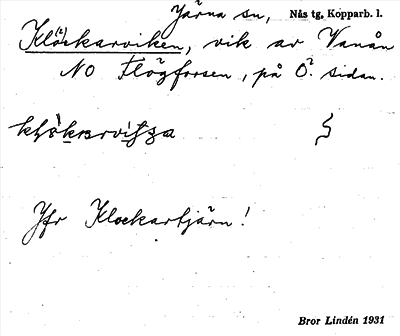 Järna sn, Nås tg, Kopparb. l.
Klockarviken, vik av Vanån
NO Flögforsen, på Ö. sidan.
Jfr Klockartjärn!
Bror Lindén 1931